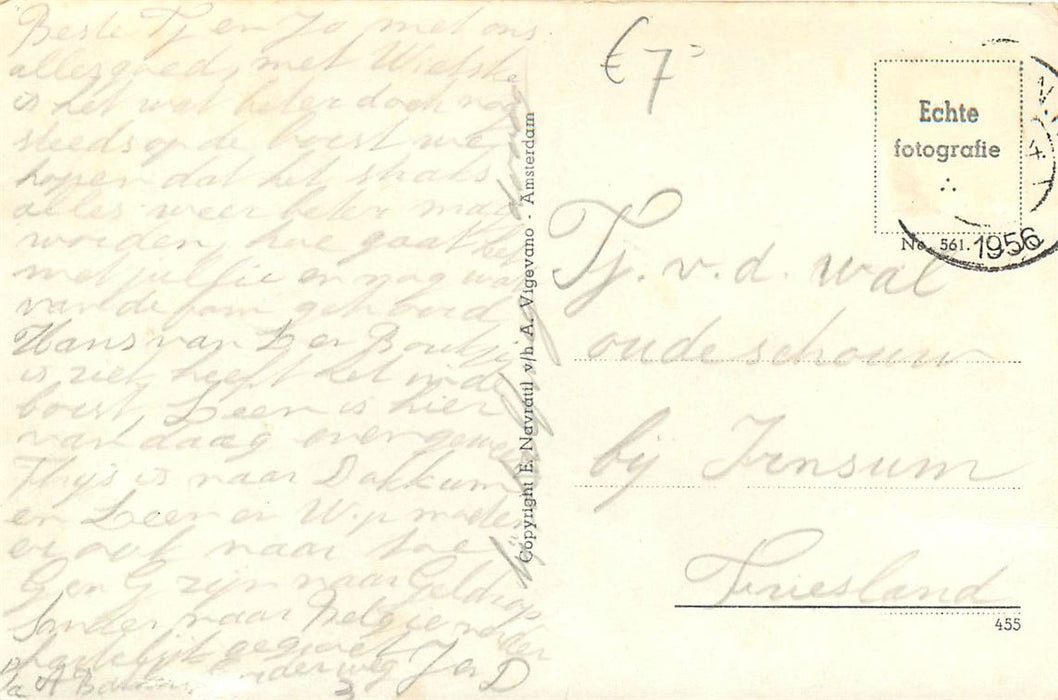 Beste Tj en Jo met ons
alles goed, met Wietske
is het wat beter doch nog
steeds op de borst we
hopen dat het straks
alles weer beter mag
worden, hoe gaat het
met jullie en nog wat
van de fam gehoord
Hans van L en Boukje
is ziek, heeft het in de
borst, Leen is hier
vandaag over
Thijs is naar Dokkum
en Leen en W.
er ook naar toe
G en G zijn naar Geldrop
Sander naar Belgie verder
hartelijk gegroet J en D
€ 7
Echte
fotografie
No. 561.
1956
Tj. v.d. Wal
oude schouw
bij Irnsum
Friesland
455
Copyright E. Navratil v/h A. Vigevano - Amsterdam